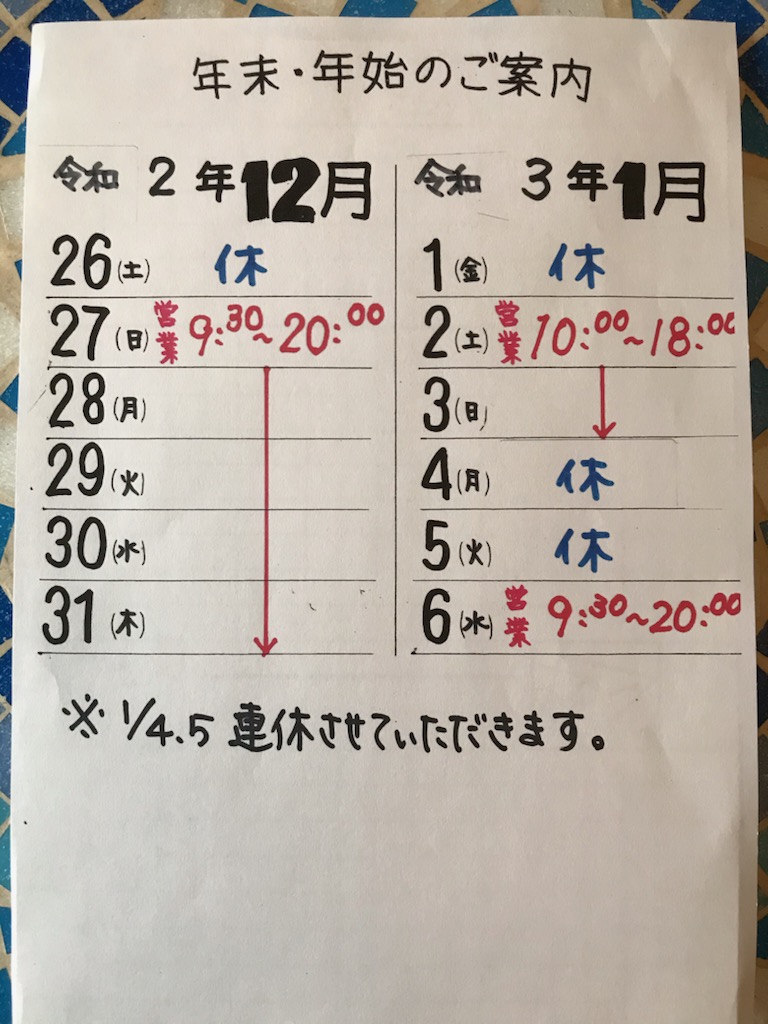 年末・年始のご案内
令和 2年12月
26(土) 休
27(日) 営業 9:30~20:00
28(月)
29(火)
30(水)
31(木)
令和 3年1月
1(金) 休
2(土) 営業 10:00~18:00
3(日)
4(月) 休
5(火) 休
6(水) 営業 9:30~20:00
※ 1/4.5 連休させていただきます。